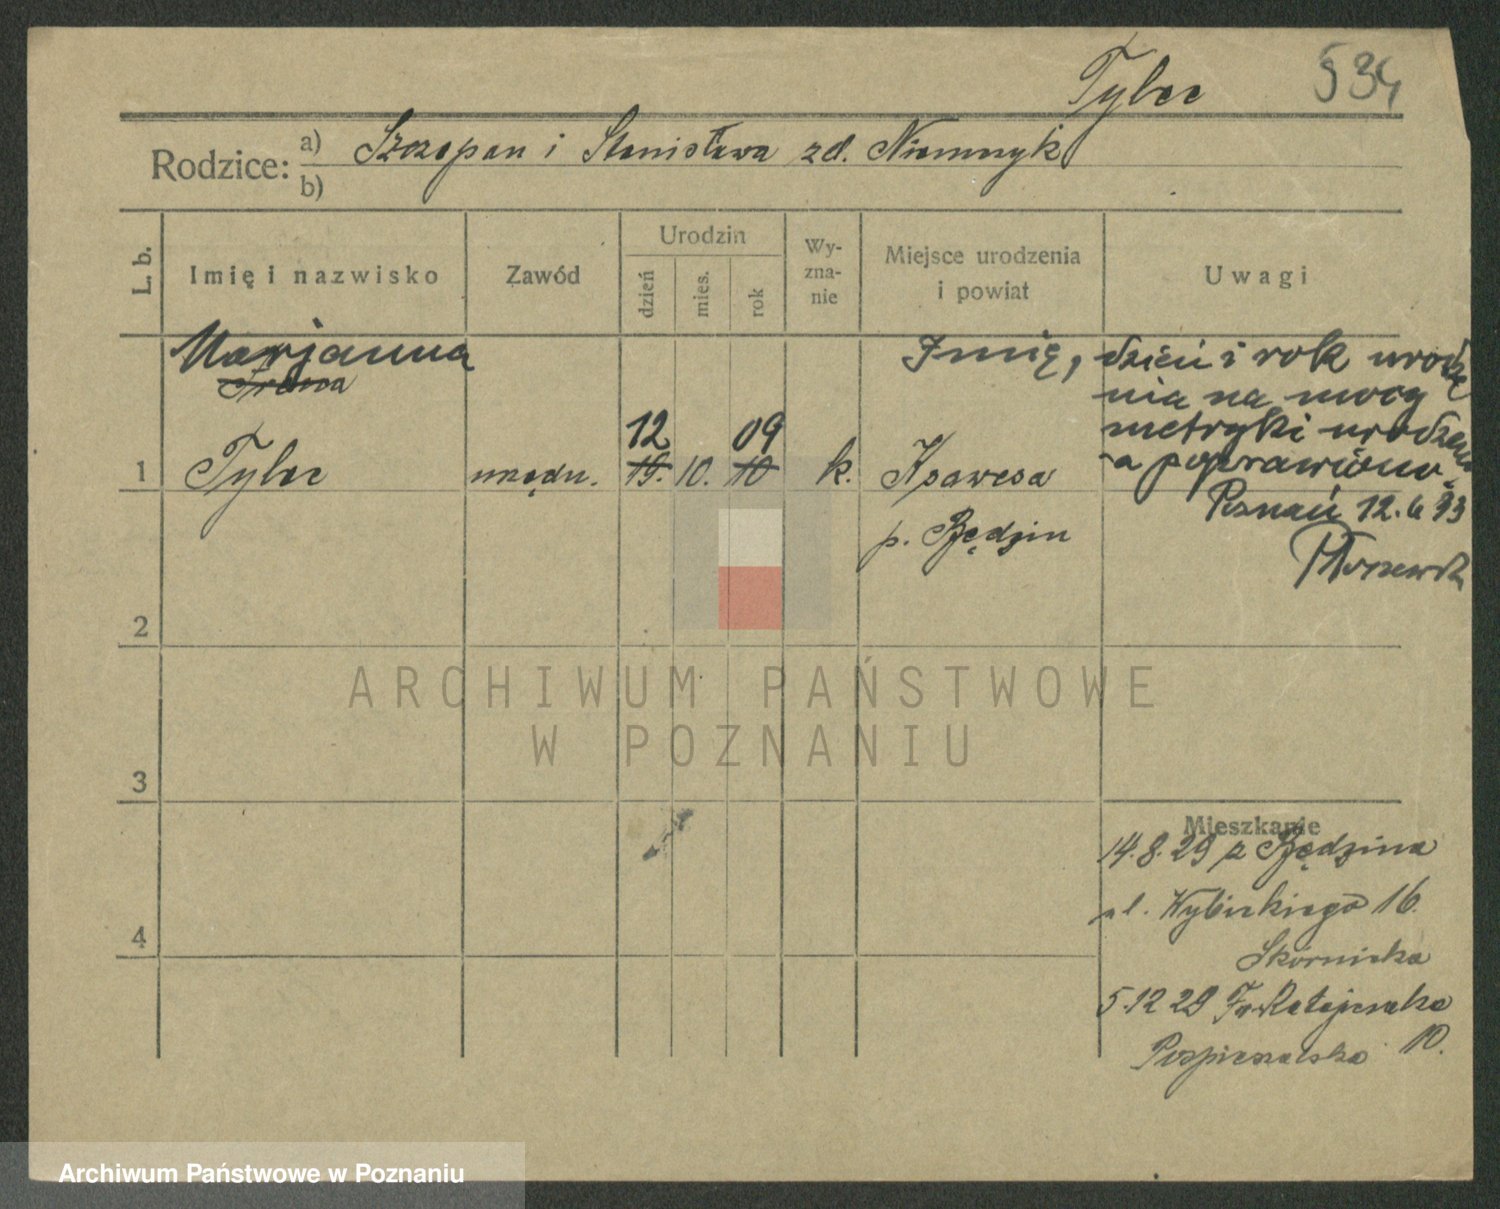 Tylec
534
Rodzice: a) Szczepan i Stanisława zd. Niemczyk
b)
L. b.
Imię i nazwisko
Zawód
Urodzin
dzień
mies.
rok
Wy-
zna-
nie
Miejsce urodzenia
i powiat
Uwagi
Marjanna
Irena
1 Tylec
urzędn.
12
19. 10.
09
10
k.
Ksawera
p. Będzin
Imię, dzień i rok urodze
nia na mocy
metryki urodze
poprawiono.
Poznań 12.6.33
2
3
4
Mieszkanie
14.8.29 z Będzina
ul. Wybickiego 16.
Skórnicka
5.12 29 Fr. Ratajczaka
10.
Pospieszalska
ARCHIWUM PAŃSTWOWE
W POZNANIU
Archiwum Państwowe w Poznaniu